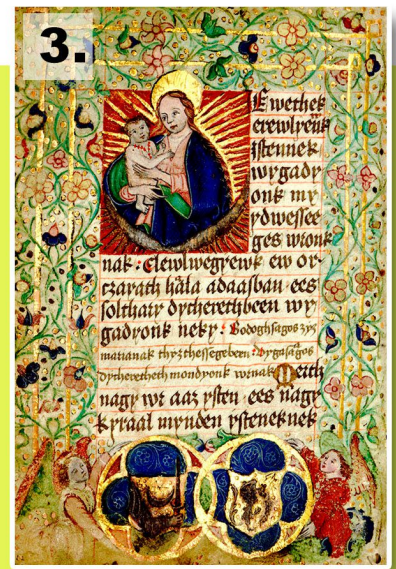 3.
Ewethek
erewlyeük
ystennek
wygady
onk my
ydwessee
ges wronk
nak : Elewlwegyewk ew or-
czayath hàla adaasban ees
solthaar dycherethbeen wy
gadyonk neky : Bodoghsagos zyz
marianak thyzthessegeben : vygasagos
dycheretheth mondyonk wrnak Merth
nagy wr aaz ysten ees nagy
kyraal mynden ysteneknek